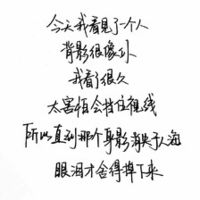 今天我看见了一个人
背影很像你
我看了很久
太害怕会挡住视线
所以直到那个身影消失于人海
眼泪才舍得掉下来